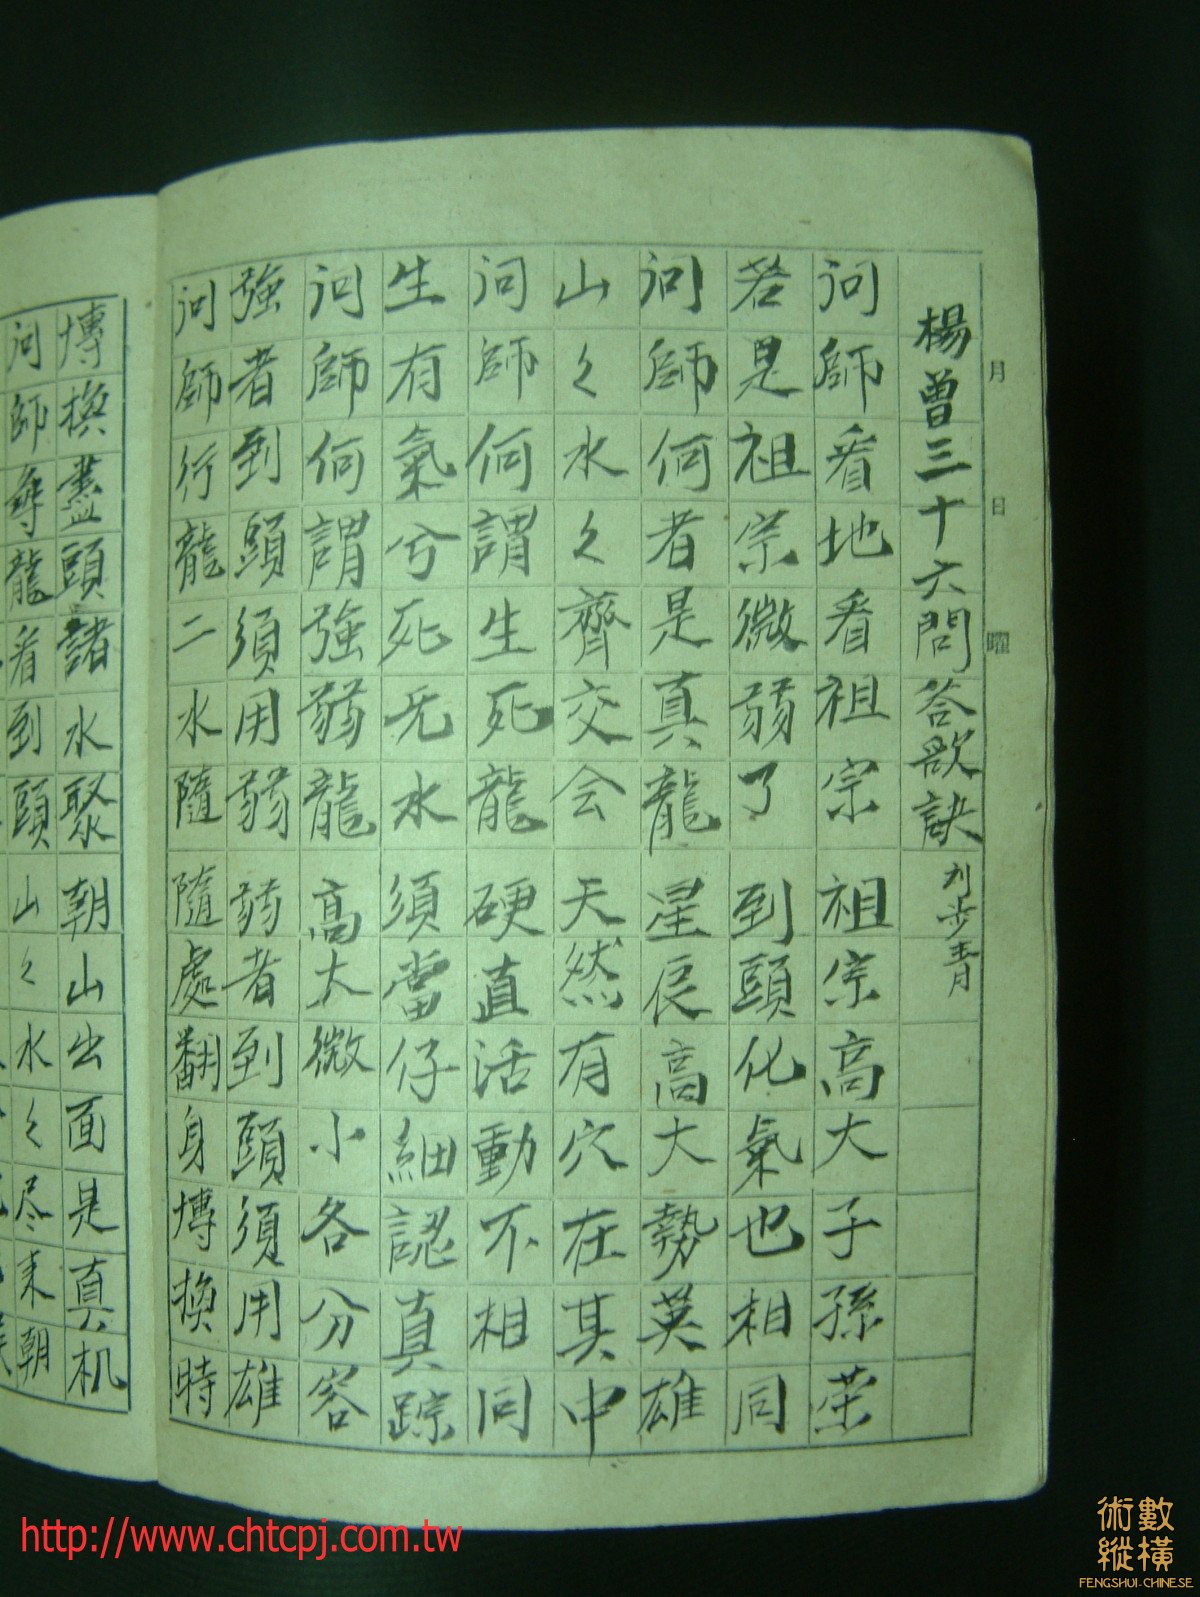 楊曾三十六問答歌訣
月 日 曜
问師看地看祖宗祖宗高大子孫荣
若是祖宗微弱了到頭化氣也相同
问師何者是真龍星辰高大勢英雄
山々水々齊交会天然有穴在其中
问師何謂生死龍硬直活動不相同
生有氣兮死无水須當仔細認真踪
问師何謂強弱龍高大微小各分容
強者到頭須用弱弱者到頭須用雄
问師行龍二水隨隨處翻身博換時
博換盡頭諸水聚朝山出面是真机
问師尋龍看到頭山々水々尽来朝
http://www.chtcpj.com.tw
術數縱橫
FENGSHUI-CHINESE